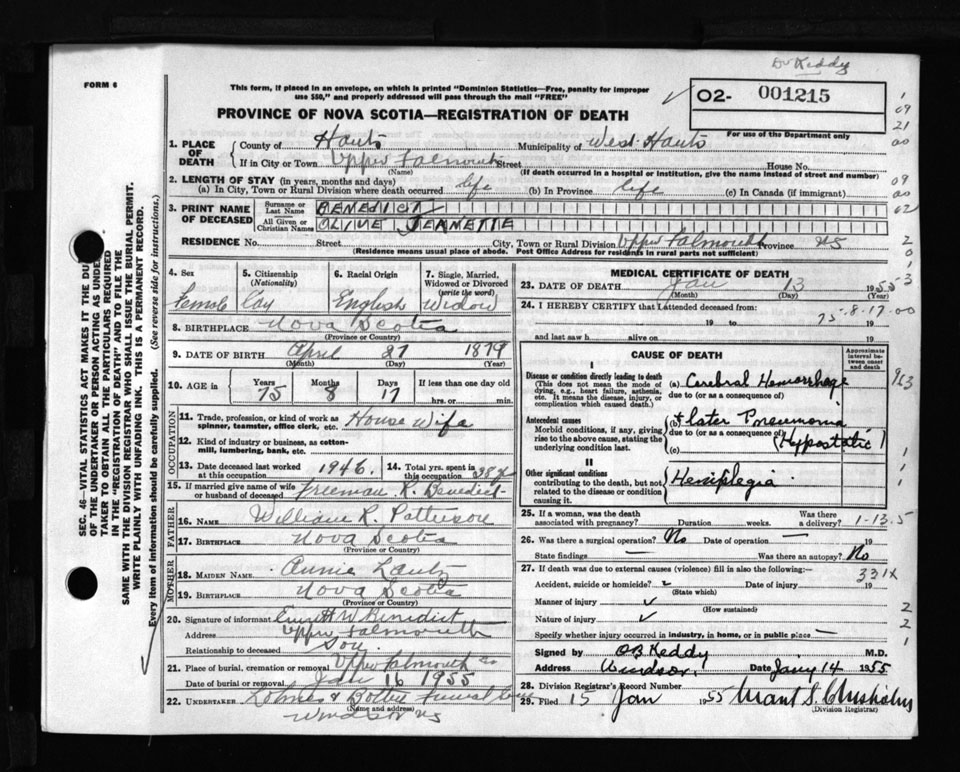 Dr Keddy
FORM 6
This form, if placed in an envelope, on which is printed "Dominion Statistics—Free, penalty for improper
use $50," and properly addressed will pass through the mail "FREE"
02- 001215
For use of the Department only
PROVINCE OF NOVA SCOTIA—REGISTRATION OF DEATH
1. PLACE OF DEATH
County of Hants Municipality of West Hants
If in City or Town Upper Falmouth Street House No.
(Name) (If death occurred in a hospital or institution, give the name instead of street and number)
2. LENGTH OF STAY (in years, months and days)
(a) In City, Town or Rural Division where death occurred life (b) In Province life (c) In Canada (if immigrant)
3. PRINT NAME OF DECEASED
Surname or Last Name BENEDICT
All Given or Christian Names OLIVE JEANETTE
RESIDENCE No. Street City, Town or Rural Division Upper Falmouth Province NS
(Residence means usual place of abode. Post Office Address for residents in rural parts not sufficient)
4. Sex Female
5. Citizenship (Nationality) Can
6. Racial Origin English
7. Single, Married, Widowed or Divorced (write the word) Widow
8. BIRTHPLACE Nova Scotia
(Province or Country)
9. DATE OF BIRTH April 27 1879
(Month) (Day) (Year)
10. AGE in Years 75 Months 8 Days 17 If less than one day old
hrs. or min.
OCCUPATION
11. Trade, profession, or kind of work as spinner, teamster, office clerk, etc. House Wife
12. Kind of industry or business, as cotton-mill, lumbering, bank, etc.
13. Date deceased last worked at this occupation 1946.
14. Total yrs. spent in this occupation 38
15. If married give name of wife or husband of deceased Freeman R. Benedict
FATHER
16. NAME William R. Patterson
17. BIRTHPLACE Nova Scotia
(Province or Country)
MOTHER
18. MAIDEN NAME Annie Lantz
19. BIRTHPLACE Nova Scotia
(Province or Country)
20. Signature of informant W Benedict
Address Upper Falmouth
Relationship to deceased Son
21. Place of burial, cremation or removal Upper Falmouth
Date of burial or removal Jan 16 1955
22. UNDERTAKER Funeral
(Name and address)
Windsor NS
MEDICAL CERTIFICATE OF DEATH
23. DATE OF DEATH Jan 13 1955
(Month) (Day) (Year)
24. I HEREBY CERTIFY that I attended deceased from
19 to 19
75-8-17-00
and last saw h alive on 19
CAUSE OF DEATH
Approximate interval between onset and death
I
Disease or condition directly leading to death (a) Cerebral Hemorrhage
(This does not mean the mode of dying, e.g., heart failure, asthenia, etc. It means the disease, injury, or complication which caused death.)
due to (or as a consequence of)
Antecedent causes (b) later Pneumonia
Morbid conditions, if any, giving rise to the above cause, stating the underlying condition last.
due to (or as a consequence of) (Hypostatic)
II
Other significant conditions Hemiplegia
contributing to the death, but not related to the disease or condition causing it.
25. If a woman, was the death associated with pregnancy? Duration weeks. Was there a delivery?
1-13-5
26. Was there a surgical operation? No Date of operation —
State findings — Was there an autopsy? No
27. If death was due to external causes (violence) fill in also the following:—
331X
Accident, suicide or homicide? Date of injury 19
(State which)
Manner of injury
(How sustained)
Nature of injury
Specify whether injury occurred in industry, in home, or in public place —
Signed by OB Keddy M.D.
Address Windsor. Date Jany 14 1955
28. Division Registrar's Record Number
29. Filed 15 Jan 1955 Grant S. Chisholm
(Division Registrar)
SEC. 46—VITAL STATISTICS ACT MAKES IT THE DU
OF THE UNDERTAKER OR PERSON ACTING AS UNDER
TAKER TO OBTAIN ALL THE PARTICULARS REQUIRED
IN THE "REGISTRATION OF DEATH" AND TO FILE THE
SAME WITH THE DIVISION REGISTRAR WHO SHALL ISSUE THE BURIAL PERMIT.
WRITE PLAINLY WITH UNFADING INK. THIS IS A PERMANENT RECORD.
Every item of information should be carefully supplied. (See reverse side for instructions.)